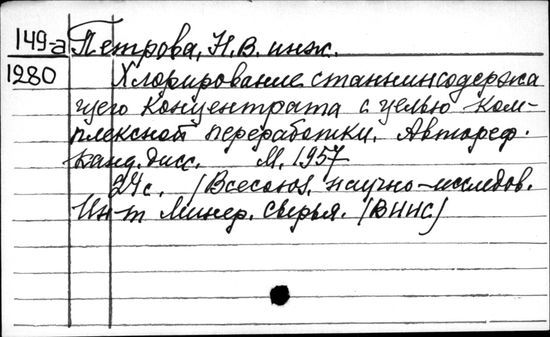 149-а Петрова, Н.В. инж.
1280 Хлорирование станнинсодержа
щего концентрата с целью ком-
плексной переработки. Автореф.
канд. дисс. М. 1957
24 с. (Всесоюз. научно-исследов.
Ин-т минер. сырья. (ВИМС)